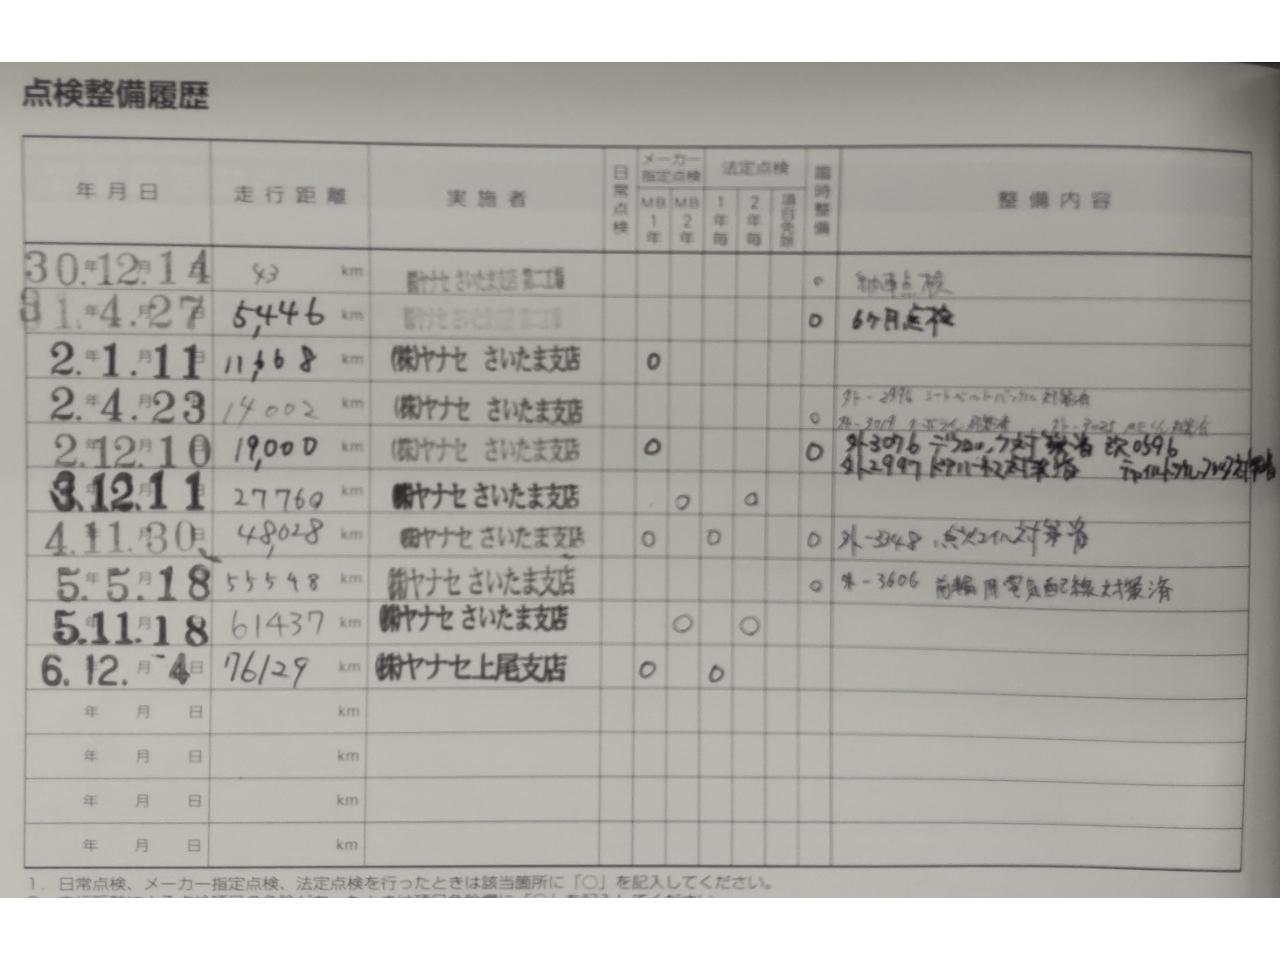 点検整備履歴
年月日 走行距離 実施者 日常点検 メーカー指定点検 法定点検 臨時整備 整備内容
MB1年 MB2年 1年毎 2年毎 項目免除
30.年12.月14日 43 km ㈱ヤナセ さいたま支店 第二工場 ○ 納車点検
31.年4.月27日 5,446 km ㈱ヤナセ さいたま支店 第二工場 ○ 6ヶ月点検
2.年1.月11日 11,668 km (株)ヤナセ さいたま支店 ○
2.年4.月23日 14002 km (株)ヤナセ さいたま支店 ○ 外-2996 シートベルトバックル対策済
外-3019 対策済 外-3025 対策済
2.年12.月10日 19,000 km (株)ヤナセ さいたま支店 ○ ○ 外3076 対策済 改0596
外2997 対策済 対策済
3.年12.月11日 27760 km ㈱ヤナセ さいたま支店 ○ ○
4.年11.月30日 48,028 km ㈱ヤナセ さいたま支店 ○ ○ ○ 外-3348 点火コイル対策済
5.年5.月18日 55598 km ㈱ヤナセ さいたま支店 ○ 外-3606 前輪用電気配線対策済
5.年11.月18日 61437 km ㈱ヤナセ さいたま支店 ○ ○
6.年12.月4日 76129 km ㈱ヤナセ上尾支店 ○ ○
年 月 日 km
年 月 日 km
年 月 日 km
年 月 日 km
1. 日常点検、メーカー指定点検、法定点検を行ったときは該当箇所に「○」を記入してください。